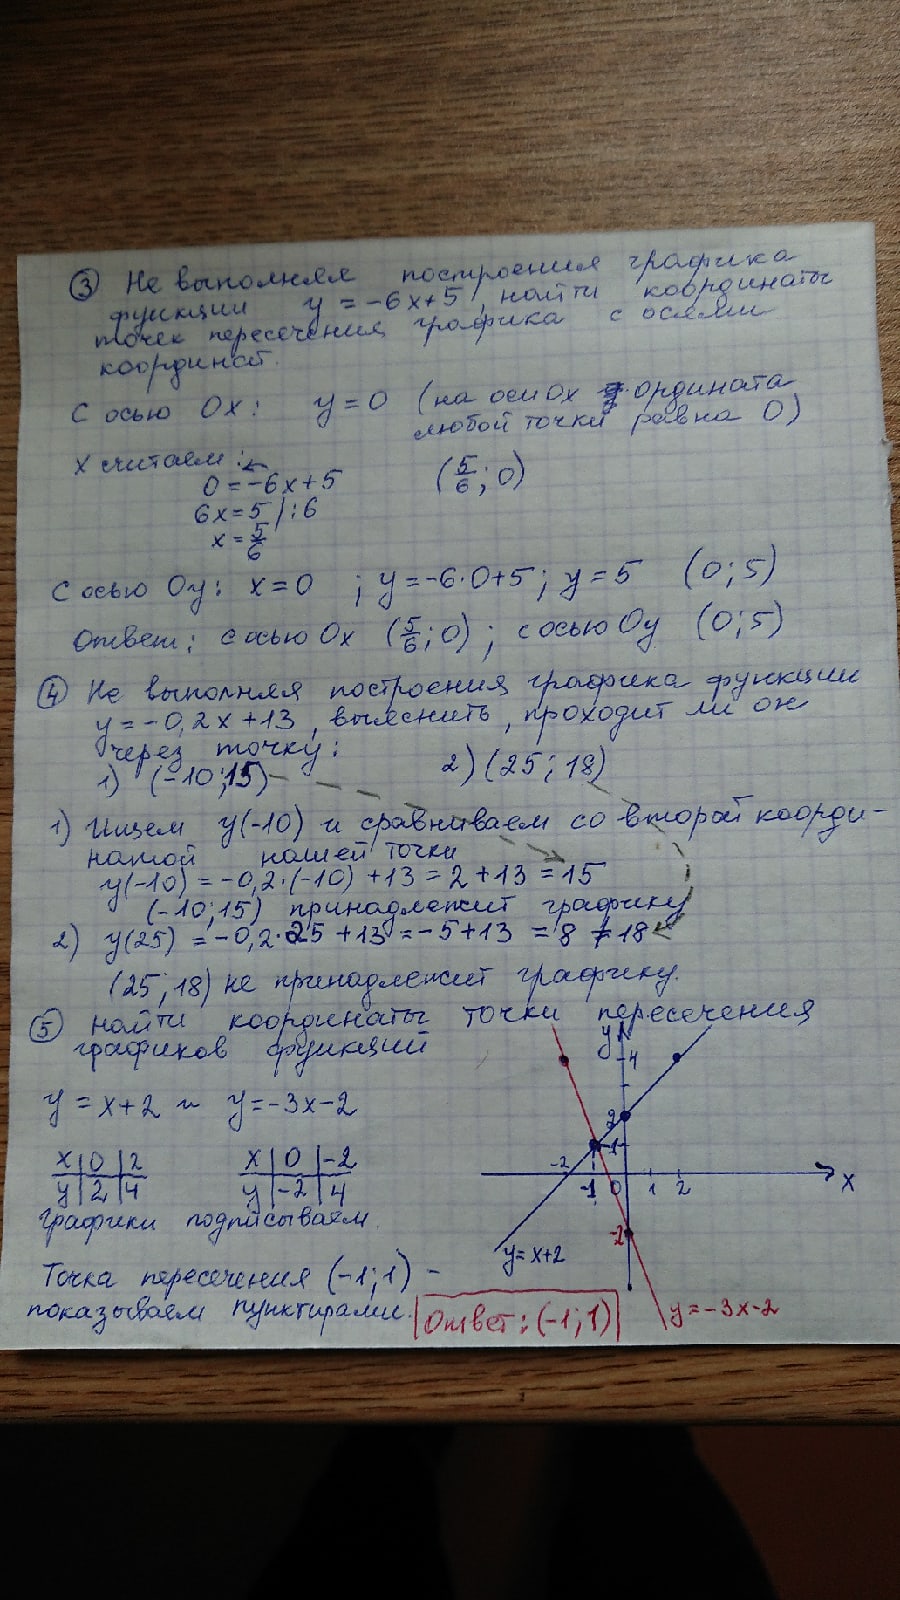 ③ Не выполняя построения графика
функции y = -6x+5, найти координаты
точек пересечения графика с осями
координат.
С осью Ox: y=0 (на оси Ox ордината
любой точки равна 0)
x считаем:
0=-6x+5 (5/6; 0)
6x=5 |:6
x=5/6
С осью Oy: x=0 ; y=-6·0+5; y=5 (0; 5)
Ответ: с осью Ox (5/6; 0); с осью Oy (0; 5)
④ Не выполняя построения графика функции
y=-0,2x+13, выяснить, проходит ли он
через точку:
1) (-10;15) 2) (25; 18)
1) Ищем y(-10) и сравниваем со второй коорди-
натой нашей точки
y(-10) = -0,2·(-10)+13 = 2+13 = 15
(-10; 15) принадлежит графику
2) y(25) = -0,2·25+13 = -5+13 = 8 ≠ 18
(25; 18) не принадлежит графику.
⑤ Найти координаты точки пересечения
графиков функций
y = x+2 и y=-3x-2
x | 0 | 2
y | 2 | 4
x | 0 | -2
y | -2 | 4
Графики подписываем.
Точка пересечения (-1; 1) -
показываем пунктирами.
Ответ: (-1; 1)
y
4
2
1
-2
-1
0
1
2
x
-2
y=x+2
y=-3x-2